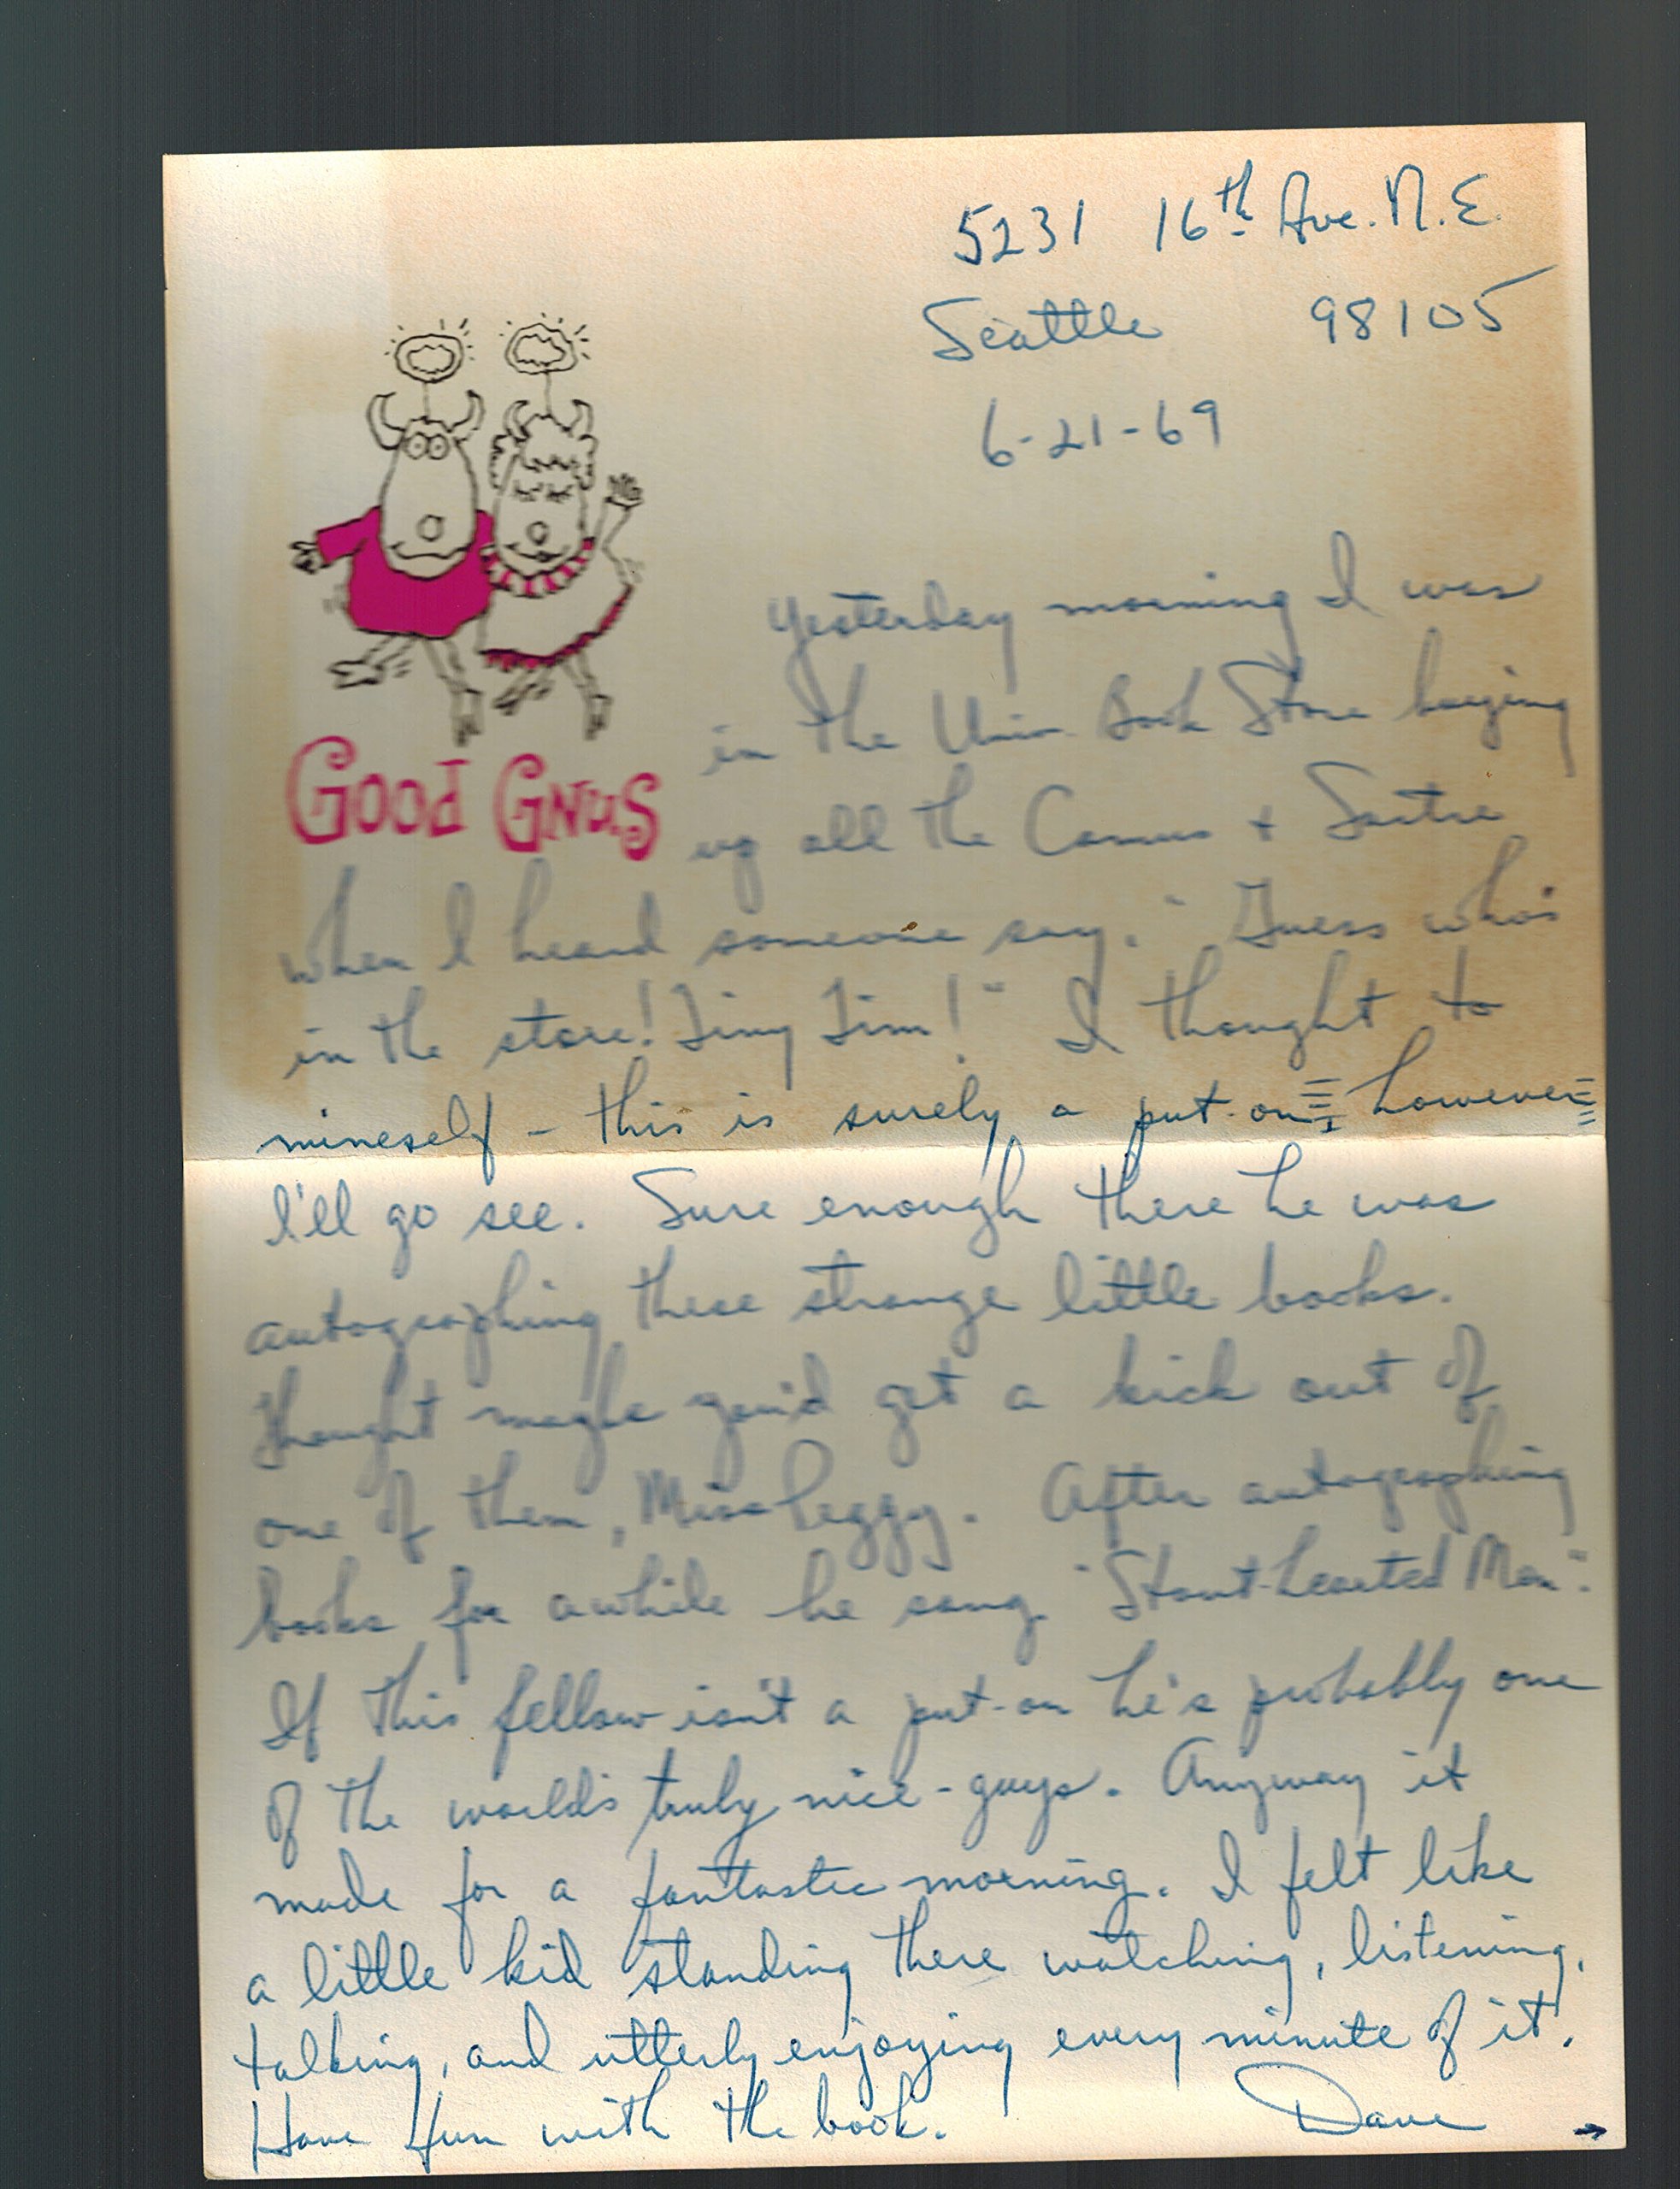 5231 16th Ave. N.E.
Seattle 98105
6-21-69
Yesterday morning I was
in the Univ. Book Store buying
GOOD GNUS
up all the Camus + Sartre
when I heard someone say. "Guess who's
in the store! Tiny Tim!" I thought to
mineself - this is surely a put-on however
I'll go see. Sure enough there he was
autographing these strange little books.
Thought maybe you'd get a kick out of
one of them, Miss Peggy. After autographing
books for awhile he sang "Stout-hearted Men".
If this fellow isn't a put-on he's probably one
of the world's truly nice-guys. Anyway it
made for a fantastic morning. I felt like
a little kid standing there watching, listening,
talking, and utterly enjoying every minute of it.
Have fun with the book. Dave →